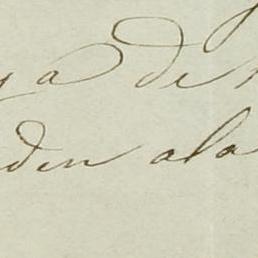 ga de
den ala